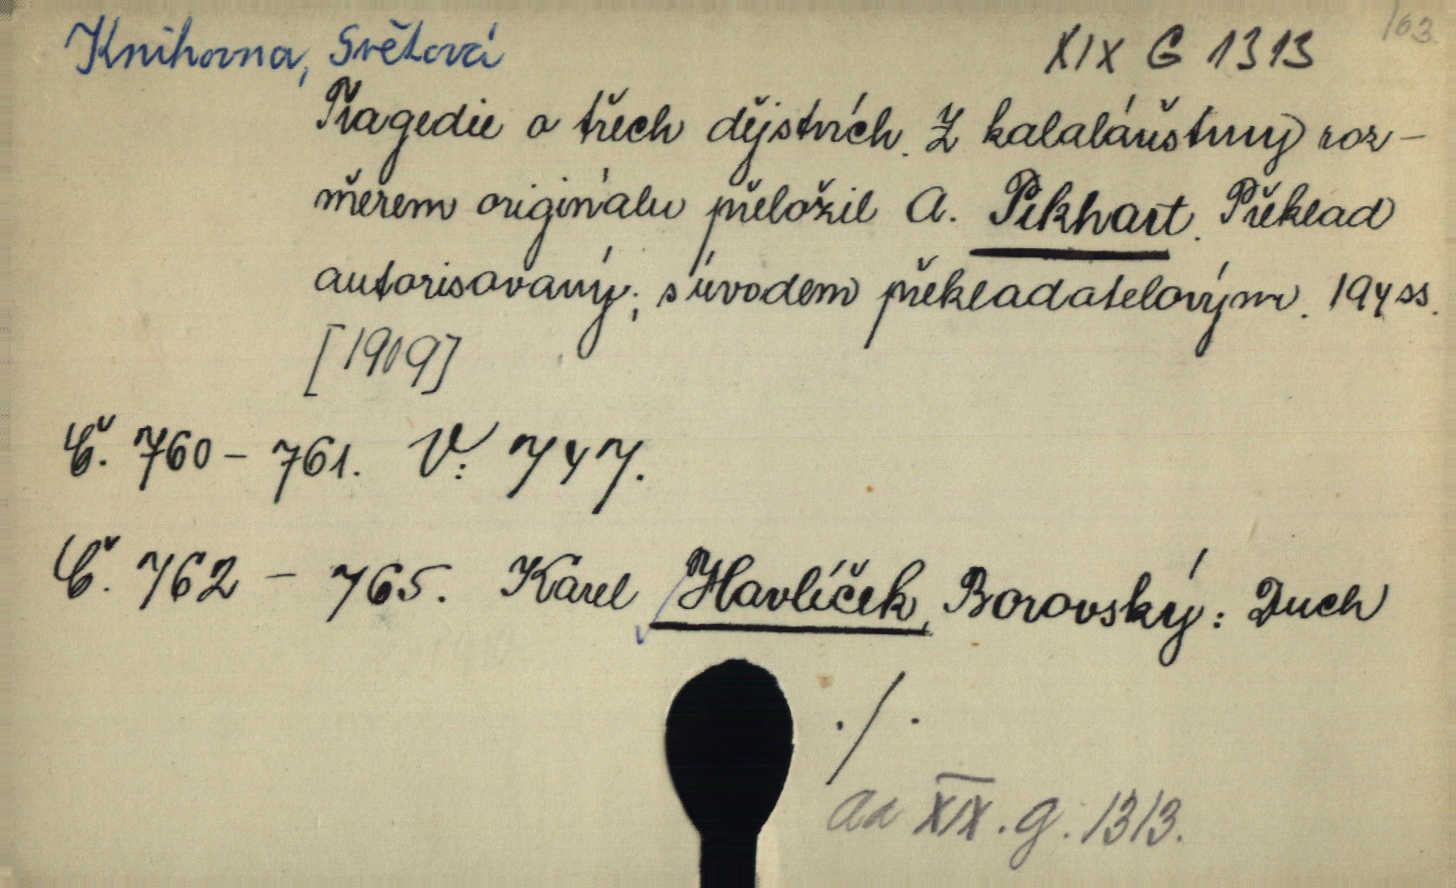 163.
Knihovna, Světová XIX G 1313
Tragedie o třech dějstvích. Z katalánštiny roz-
měrem originálu přeložil A. Pikhart. Překlad
autorisovaný; s úvodem překladatelovým. 194 ss.
[1909]
Č. 760 – 761. V: 747.
Č. 762 – 765. Karel Havlíček Borovský: Duch
./.
ad XIX. g. 1313.